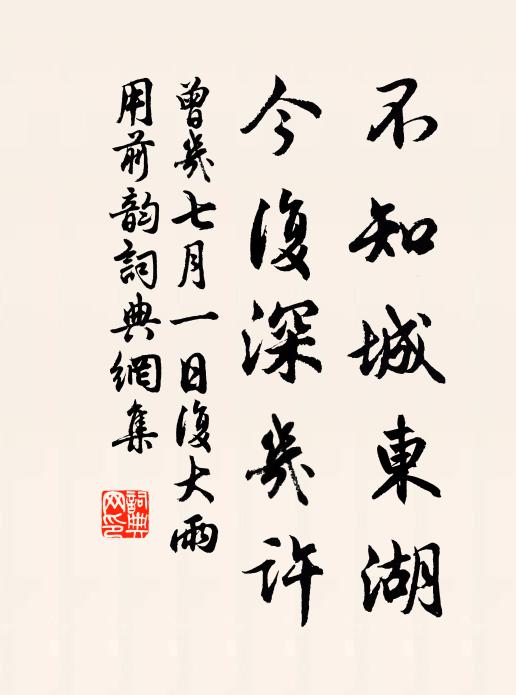 不知城東湖
今復深幾許
曾幾七月一日復大雨
用前韵詞典網集
詞典网印